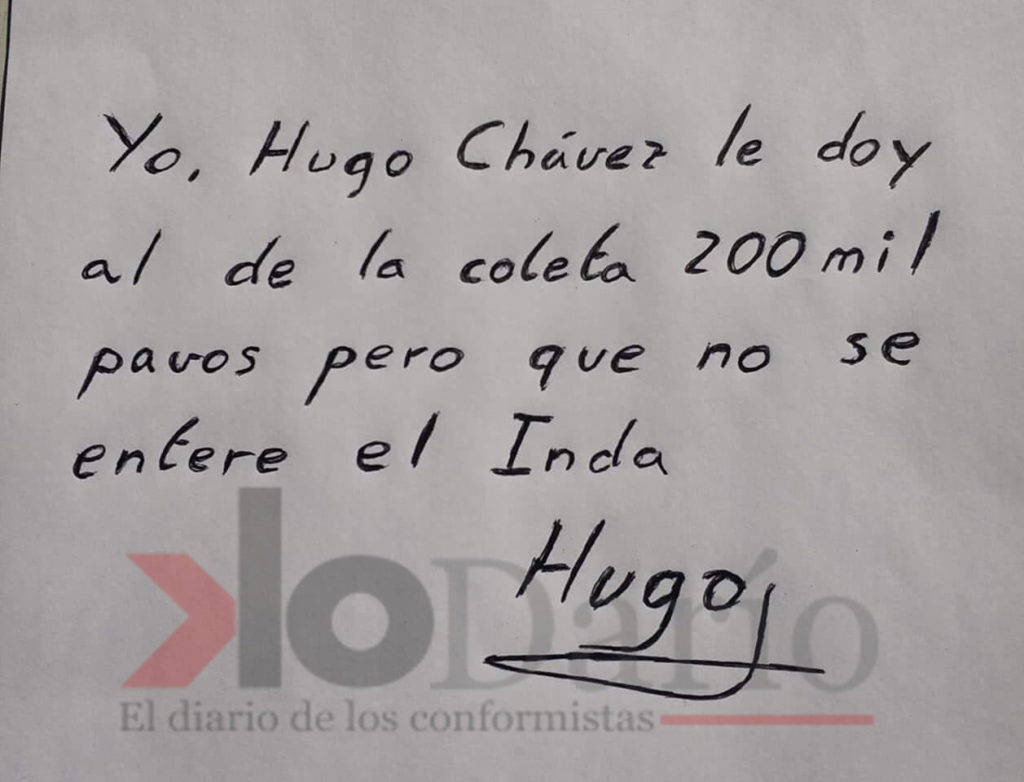 Yo, Hugo Chávez le doy
al de la coleta 200 mil
pavos pero que no se
entere el Inda
Hugo
kloDarío
El diario de los conformistas